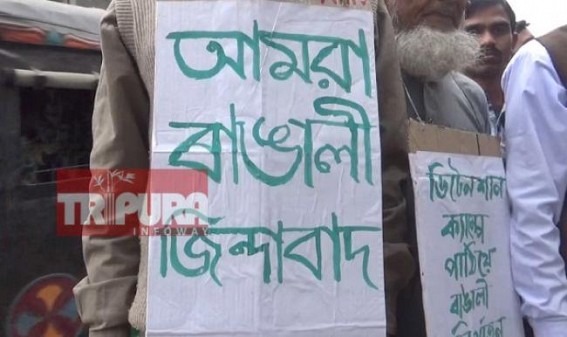 আমরা
বাঙালী
জিন্দাবাদ
TRIPURA
INFOWAY
ডিটেনশান
ক্যাম্পে
পাঠিয়ে
বাঙালী
নির্যাতন